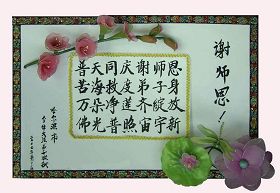 谢师恩!
普天同庆谢师恩
苦海救度弟子身
万朵净莲齐绽放
佛光普照宙宇新